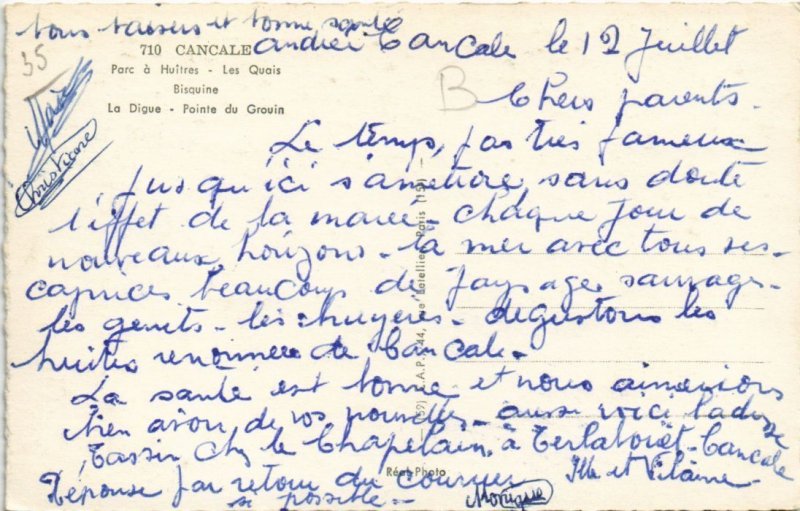 bons baisers et bonne santé
André
35
710 CANCALE
Parc à Huîtres - Les Quais
Bisquine
La Digue - Pointe du Grouin
Cancale le 12 Juillet
B
Chers parents.
Le temps, pas très fameux
jusqu'ici s'améliore, sans doute
l'effet de la marée - chaque jour de
nouveaux horizons - la mer avec tous ses
caprices beaucoup de paysages sauvages -
les genets - les bruyères - dégustons les
huitres renommées de Cancale.
La santé est bonne et nous aimerions
bien avoir de vos nouvelles - aussi voici l'adresse
Tassin chez le Chapelain, à Terlabouët - Cancale
Ille et Vilaine -
Réponse par retour du courrier
si possible -
Monique
Christiane
Réel-Photo